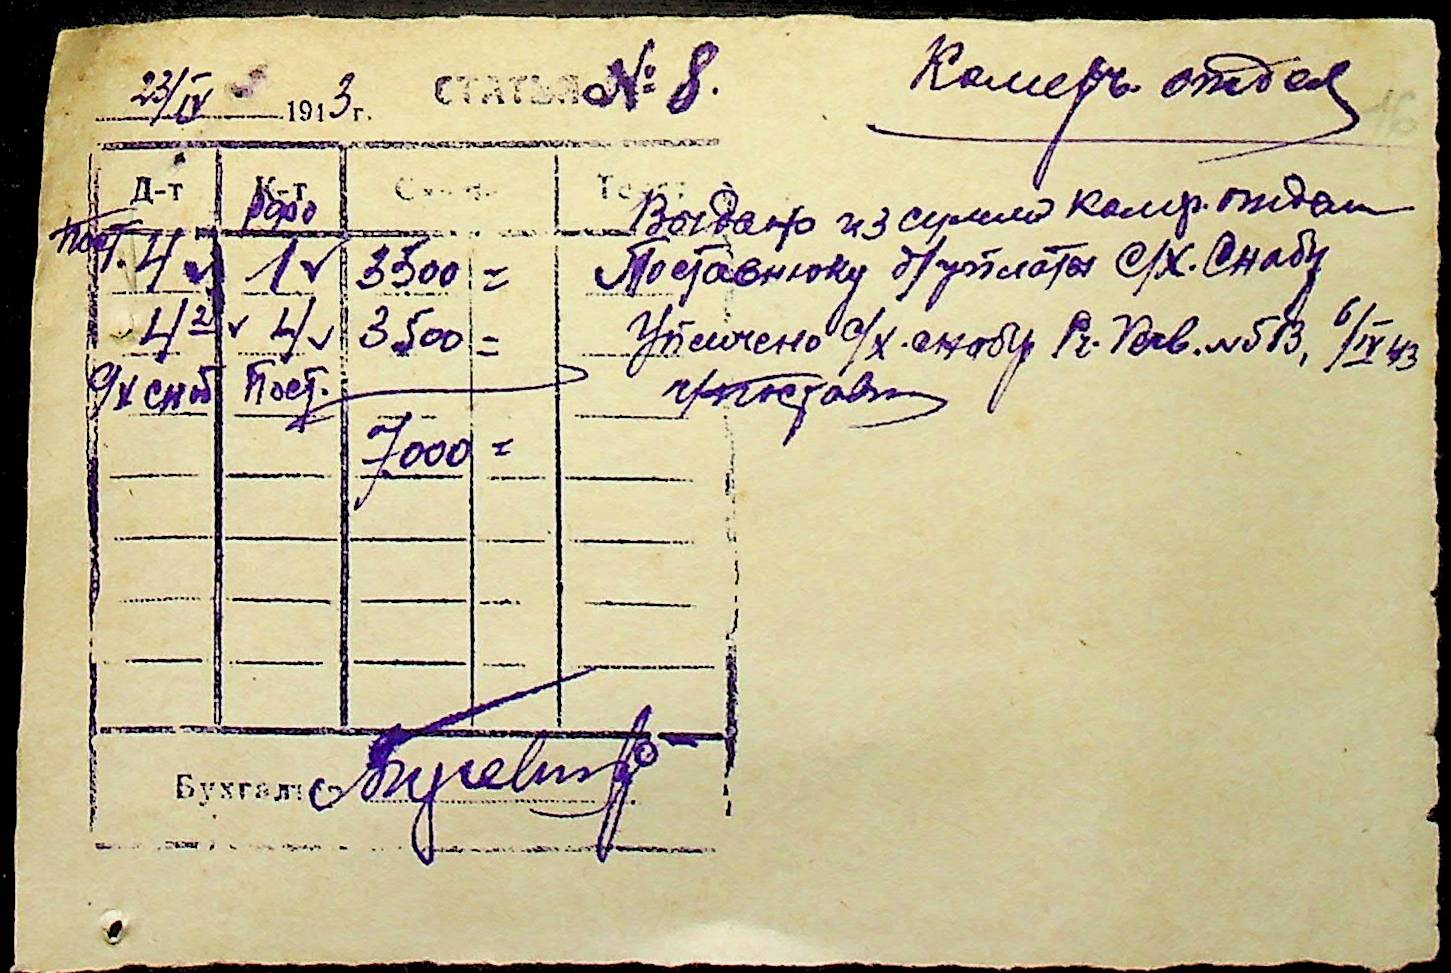 23/IV 1943 г. СТАТЬЯ № 8. Комерч. отдел
16
Д-т К-т Сумма Текст
Пост. 4 1 3500 = Выдано из сумм комр. отдел
Поставнюку д/уплаты С/Х. Снабу
4 2 4 3500 = Уплачено с/х. снабу Рг. №513, 6/IV 43
с/х снаб Пост.
7000 =
Бухгалтер